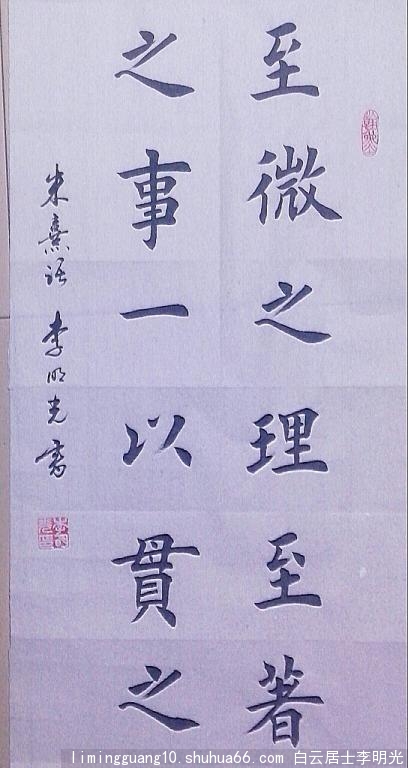 至微之理至著
之事一以贯之
朱熹语 李明光书
limingguang10.shuhua66.com 白云居士李明光